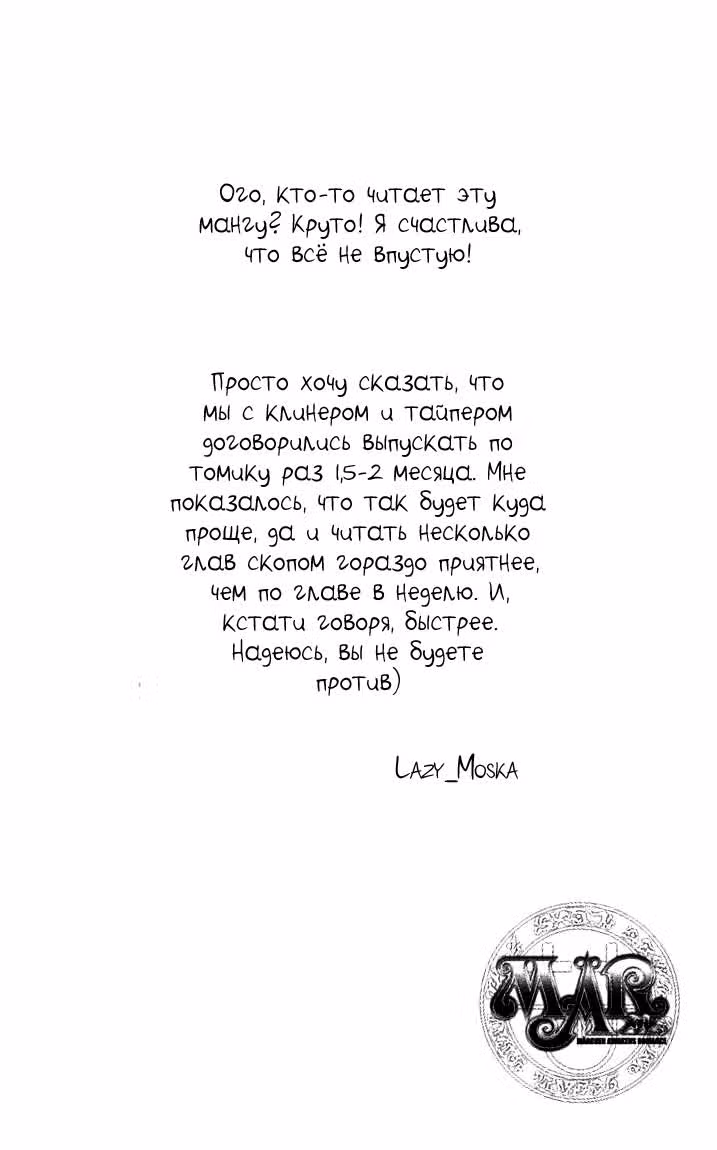 Ого, кто-то читает эту
мангу? Круто! Я счастлива,
что всё не впустую!
Просто хочу сказать, что
мы с клинером и тайпером
договорились выпускать по
томику раз 1,5-2 месяца. Мне
показалось, что так будет куда
проще, да и читать несколько
глав скопом гораздо приятнее,
чем по главе в неделю. И,
кстати говоря, быстрее.
Надеюсь, вы не будете
против)
Lazy_Moska
MÄR